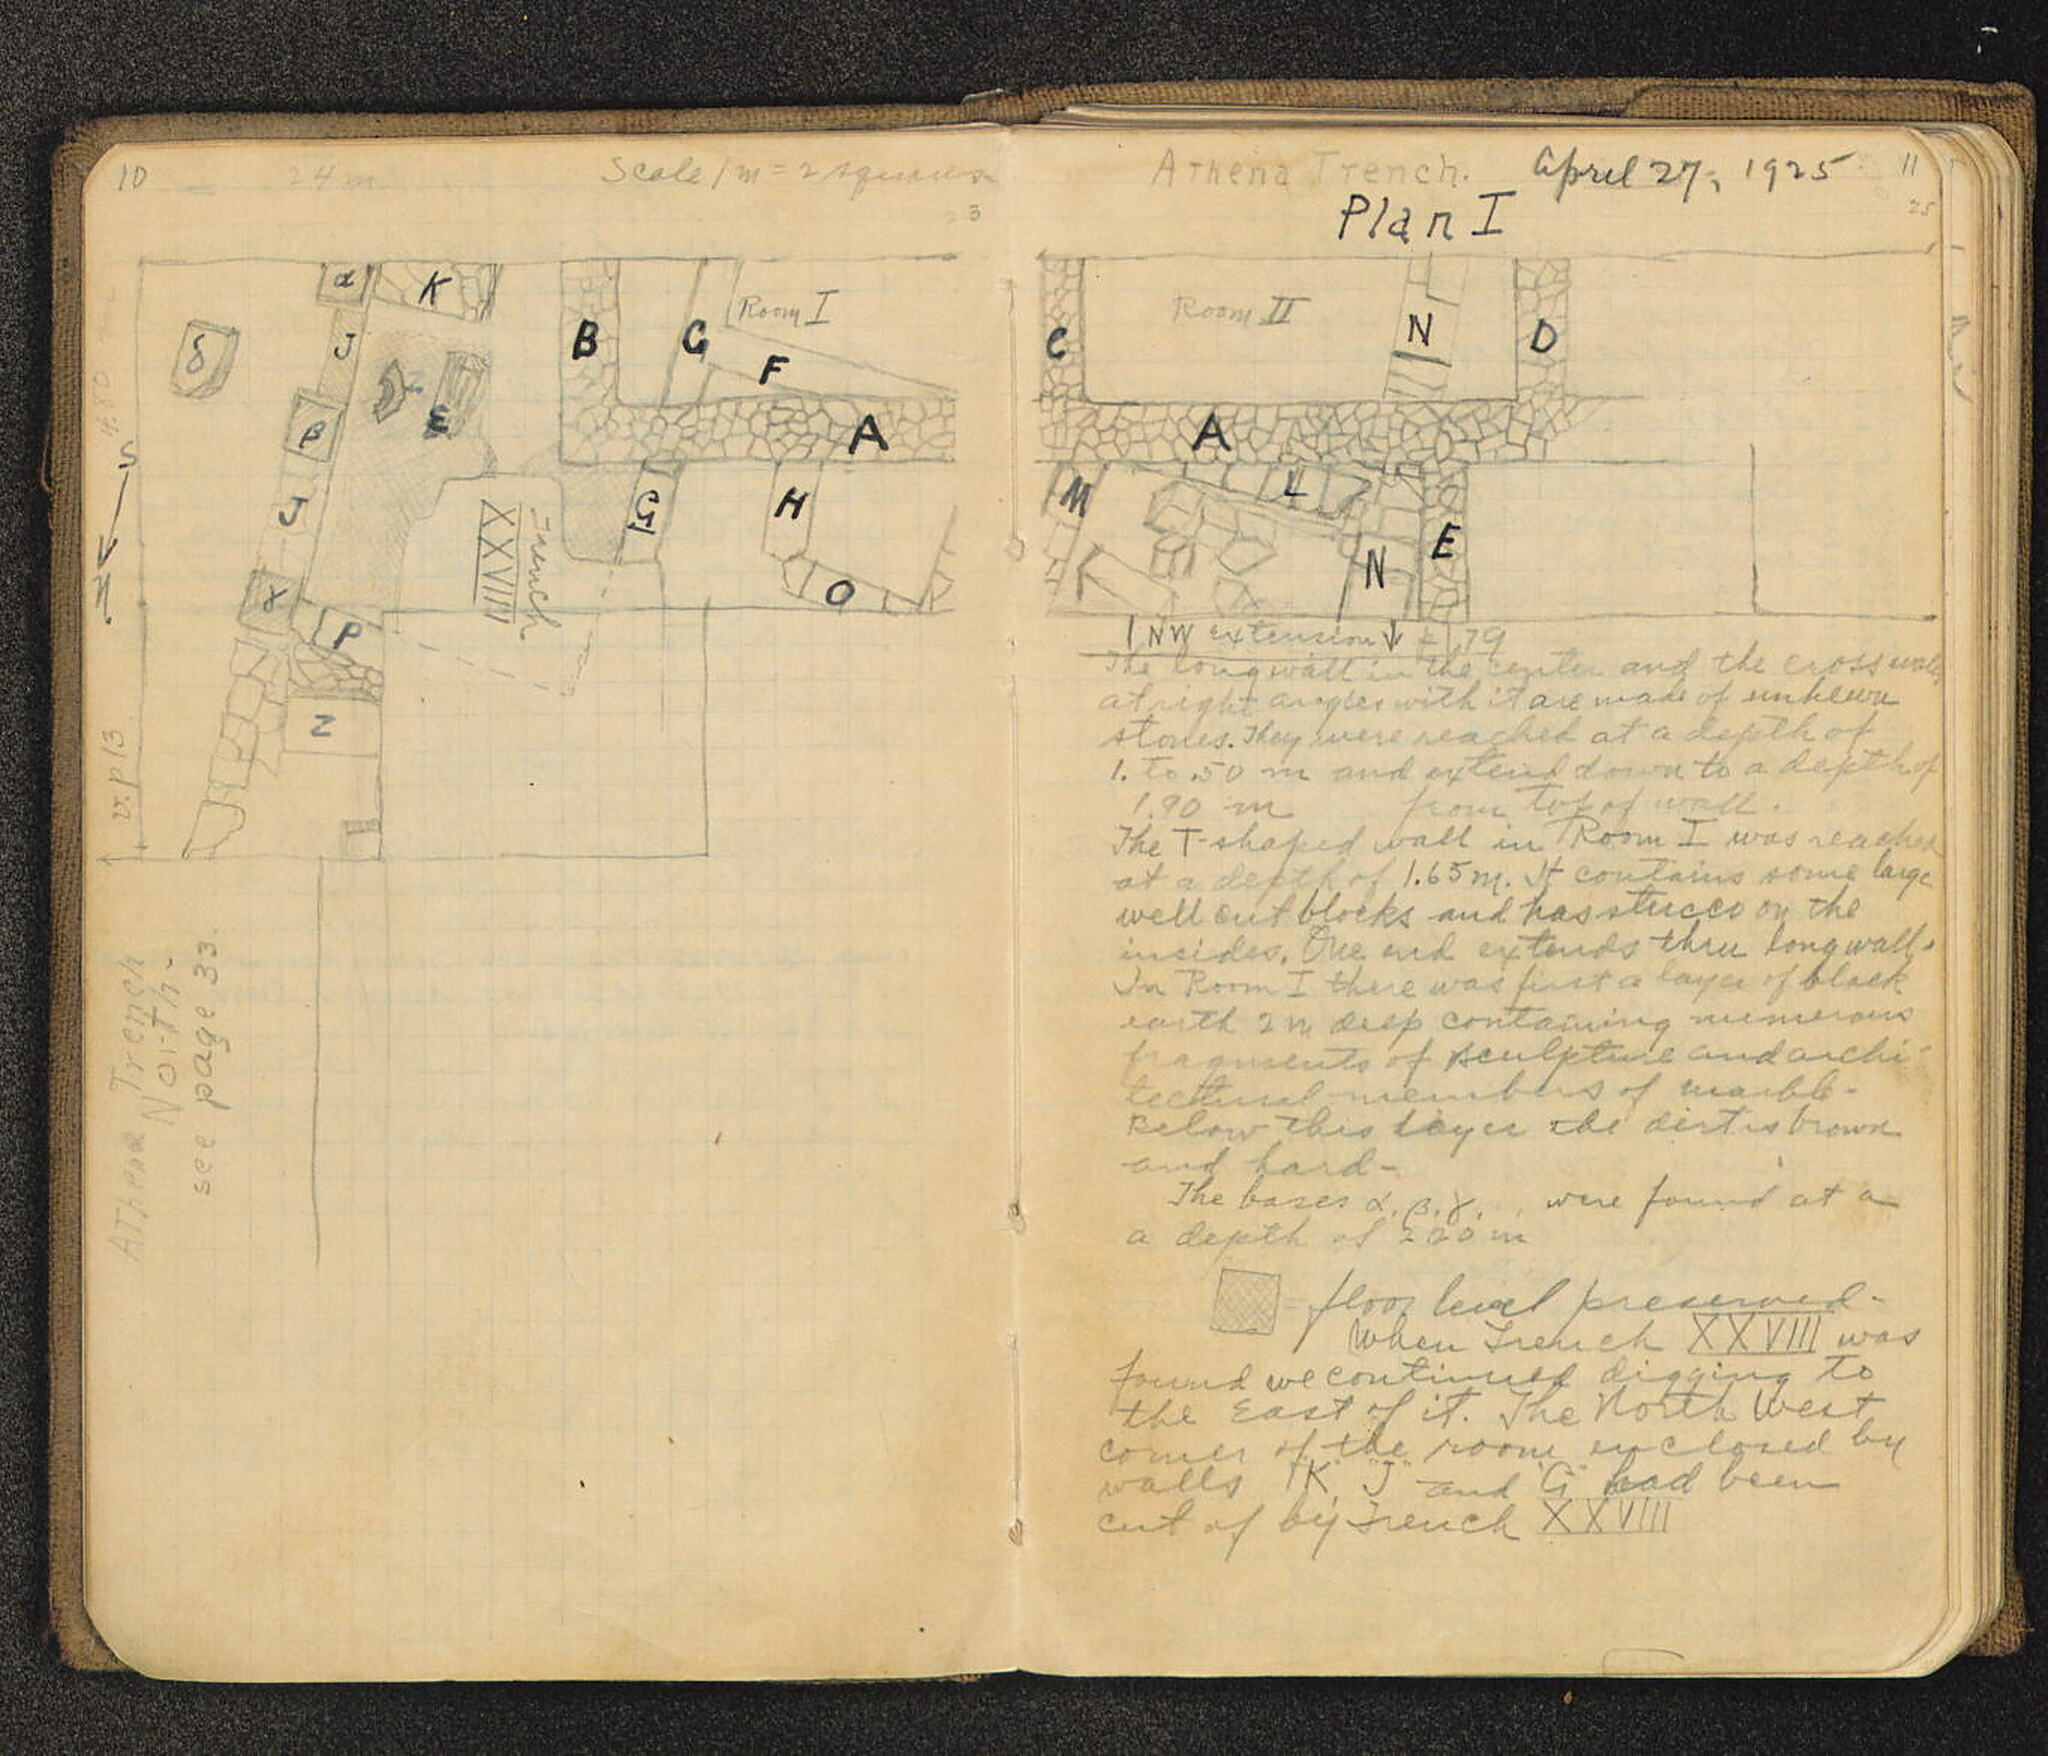 10
24 m
Scale 1 m = 2 squares
23
α
K
δ
J
ε
β
J
γ
P
Z
B
G
Room I
F
A
Trench
XXVIII
G
H
O
S
N
4.80
v. p 13
Athena Trench
North.
see page 33.
Athena Trench.
April 27, 1925
11
25
Plan I
C
Room II
N
D
A
M
L
N
E
NW extension ↓
The long wall in the center and the cross walls
at right angles with it are made of unhewn
stones. They were reached at a depth of
1. to .50 m and extend down to a depth of
1.90 m from top of wall.
The T-shaped wall in Room I was reached
at a depth of 1.65 m. It contains some large
well cut blocks and has stucco on the
insides. One end extends thru long wall.
In Room I there was first a layer of black
earth 2 m deep containing numerous
fragments of sculpture and archi-
tectural members of marble.
Below this layer the dirt is brown
and hard-
The bases α. β. γ. were found at a
a depth of 2 20 m
floor level preserved-
When Trench XXVIII was
found we continued digging to
the East of it. The North West
corner of the room enclosed by
walls "K" "J" and "G" had been
cut of by Trench XXVIII